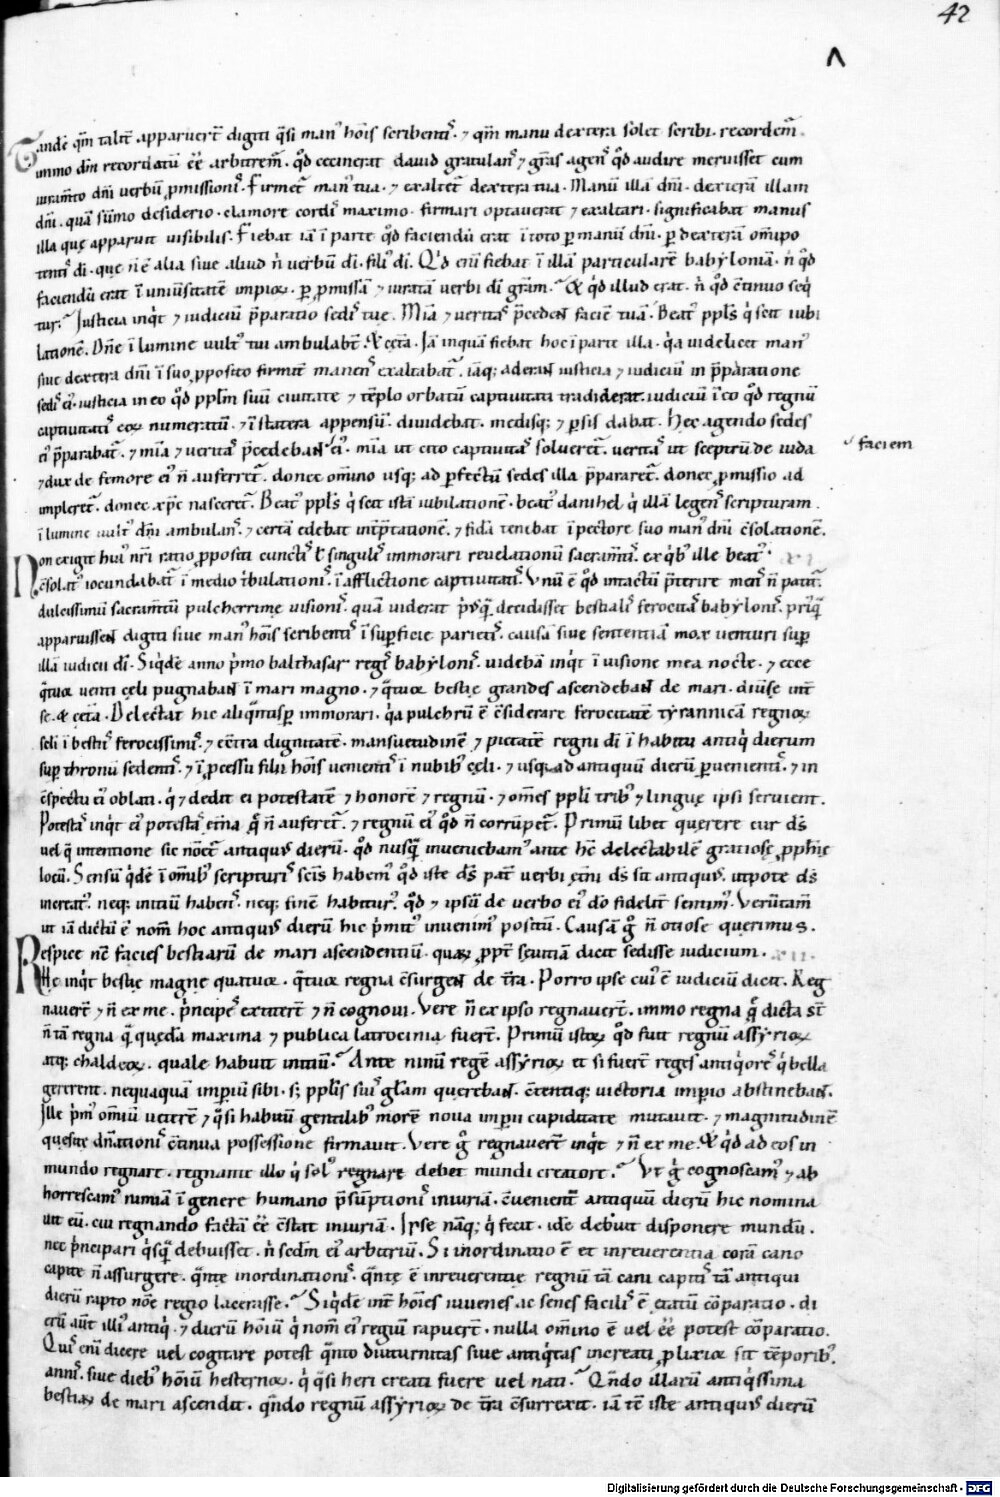 42
Λ
Tandē qm̄ talit᷑ apparuer̄t digiti q̄si man᷒ hōis scribent᷒ · ⁊ qm̄ manu dextera solet scribi · recordem᷑
immo dn̄m recordatū ēē arbitrem᷑ · qd̓ cecinerat dauid gratulan᷒ ⁊ gr̄as agen᷒ qd̓ audire meruisset cum
iuram̄to dn̄i uerbū ꝓmissioni᷒ · Firmet᷑ man᷒ tua · ⁊ exaltet᷑ dextera tua · Manū illā dn̄i · dexterā illam
dn̄i · quā sūmo desiderio · clamore cordi᷒ maximo · firmari optauerat ⁊ exaltari · significabat manus
illa quę apparuit uisibilis · Fiebat iā ī parte qd̓ faciendū erat ī toto ꝑ manū dn̄i · ꝑ dexterā om̄ipo
tenti᷒ di · que n̄ ē alia siue aliud n̓ uerbū di · fili᷒ di · Qd̓ eni̅ fiebat ī illā particularē babyloniā · n̓ qd̓
faciendū erat ī uniu͛sitatē impioꝝ · ꝑ ꝓmissā ⁊ iuratā uerbi di gr̄am · Et qd̓ illud erat · n̓ qd̓ c̄tinuo seq̓
tur · Justicia inq̓t ⁊ iudiciū p̄paratio sedi᷒ tue · Mīa ⁊ uerita᷒ p̄cedent faciē tuā · Beat᷒ ppl̄s q̓ scit iubi
lationē · Dn̄e ī lumine uult᷒ tui ambulabt̄ · Et cęta · Jā inquā fiebat hoc ī parte illa · q̓a uidelicet man᷒
siue dextera dn̄i ī suo ꝓposito firmit᷑ manen᷒ exaltabat᷑ · iāq; aderant iusticia ⁊ iudiciū in p̄paratione
sedi᷒ ei᷒ · iusticia in eo qd̓ ppl̄m suū ciuitate ⁊ tēplo orbatū captiuitati tradiderat · iudiciū ī eo qd̓ regnū
captiuitati᷒ eoꝝ numeratū · ⁊ ī statera appensū · diuidebat · medisq; ⁊ ꝑsis dabat · Hęc agendo sedes
ei᷒ p̄parabat᷑ · ⁊ mīa ⁊ uerita᷒ p̄cedebant ei᷒ · mīa ut cito captiuita᷒ solueret᷑ · uerita᷒ ut sceptrū de iuda
faciem
⁊ dux de femore ei᷒ n̄ auferret᷑ · donec om̄ino usq; ad ꝑfectū sedes illa p̄pararet᷑ · donec ꝓmissio ad
impleret᷑ · donec xp̄c nasceret᷑ · Beat᷒ ppl̄s q̓ scit istā iubilationē · beat᷒ danihel q̓ illā legen᷒ scripturam ·
ī lumine uult᷒ dn̄i ambulan᷒ · ⁊ certā edebat int͛p̄tationē · ⁊ fidā tenebat ī pectore suo man᷒ dn̄i c̄solationē ·
Non exigit hui᷒ nr̄i ratio ꝓpositi cuncti᷒ ł singuli᷒ immorari reuelationū sacram̄ti᷒ · ex q̓b᷒ ille beat᷒ ·
c̄solat᷒ iocundabat᷑ ī medio t̓bulationi᷒ · ī afflictione captiuitati᷒ · Vnū ē qd̓ intactū p̄terire men᷒ n̄ patit᷑ ·
dulcissimū sacram̄tū pulcherrimę uisioni᷒ · quā uiderat p̓usq̄ decidisset bestiali᷒ ferocita᷒ babyloni᷒ · priq̄
apparuissent digiti siue man᷒ hōis scribenti᷒ ī suꝑficie parieti᷒ · causā siue sententiā mox uenturi suꝑ
illā iudicii di · Siqd̓ē anno p̓mo balthasar regi᷒ babyloni᷒ · uidebā inq̓t ī uisione mea nocte · ⁊ ecce
q̄tuor uenti cęli pugnabant ī mari magno · ⁊ q̄tuor bestię grandes ascendebant de mari · diu͛se int͛
se · & cęta · Delectat hic aliq̄ntisꝑ immorari · q̓a pulchrū ē c̄siderare ferocitatē tyrannicā regnoꝝ
scli ī bestii᷒ ferocissimi᷒ · ⁊ c̄tra dignitatē · mansuetudinē ⁊ pietatē regni di ī habitu antiq̓ dierum
suꝑ thronū sedenti᷒ · ⁊ ī ꝓcessu filii hōis uenienti᷒ ī nubib᷒ cęli · ⁊ usq; ad antiquū dierū ꝑuenienti᷒ · ⁊ in
c̄spectu ei᷒ oblati · q̓ ⁊ dedit ei potestatē ⁊ honorē ⁊ regnū · ⁊ om̄es ppl̄i trib᷒ ⁊ linguę ipsi seruient ·
Potesta᷒ inq̓t ei᷒ potesta᷒ ęt͛na q̄ n̄ auferet᷑ · ⁊ regnū ei᷒ qd̓ n̄ corrūpet᷑ · Primū libet quęrere cur ds̄
uel q̄ intentione sic noīet᷑ antiquus dierū · qd̓ nusq̄ inueniebam᷒ ante hc̄ delectabilē gratiosę ꝓph̄ie
locū · Sensū qd̓ē ī om̄ib᷒ scripturi᷒ scīs habem᷒ qd̓ iste ds̄ pat͛ uerbi ęt͛ni ds̄ sit antiquus · utpote ds̄
increat᷒ · neq; initiū haben᷒ · neq; finē habitur᷒ · qd̓ ⁊ ipsū de uerbo ei᷒ dō fidelit͛ sentim᷒ · Verūtam̄
ut iā dictū ē nom̄ hoc antiquus dierū hic p̓mit᷒ inuenim᷒ positū · Causā g̓ n̄ otiose querimus ·
Respice nc̄ facies bestiarū de mari ascendentiū · quaꝝ ppt͛ sentīā dicit sedisse iudicium · xii ·
Hę inq̓t bestię magne quatuor · q̄tuor regna c̄surgent de t͛ra · Porro ipse cui᷒ ē iudiciū dicit · Reg
nauer̄t ⁊ n̄ ex me · p̓ncipe᷒ extiter̄t ⁊ n̄ cognoui · Vere n̄ ex ipso regnauer̄t · immo regna q̄ dicta st̄
n̄ tā regna q̄ quędā maxima ⁊ publica latrocinia fuer̄t · Primū istoꝝ qd̓ fuit regnū assyrioꝝ
atq; chaldeoꝝ · quale habuit initiū · Ante ninū regē assyrioꝝ et si fuer̄t reges antiq̓ores q̓ bella
gererent · nequaquā imperiū sibi · s; ppl̄is sui᷒ gl̄am quęrebant · c̄tentiq; uictoria imperio abstinebant ·
Jlle p̓m᷒ om̄iū uet͛ē ⁊ q̄si habitū gentilab᷒ morē noua imperii cupiditate mutauit · ⁊ magnitudinē
quęsitę dn̄ationi᷒ c̄tinua possessione firmauit · Vere g̓ regnauer̄t inq̓t ⁊ n̄ ex me · Et qd̓ ad eos in
mundo regnare · regnante illo q̓ sol᷒ regnare debet mundi creatore · Vt g̓ cognoscam᷒ ⁊ ab
horrescam᷒ nimiā ī genere humano p̄sūptioni᷒ iniuriā · c̄uenient͛ antiquū dierū hic nomina
uit eū · cui regnando factā ēē c̄stat iniuriā · Ipse nāq; q̓ fecit · idē debuit disponere mundū ·
nec p̓ncipari q̓sq̄ debuisset · n̓ sed̄m ei᷒ arbitriū · Si inordinatio ē et inreuerentia corā cano
capite n̄ assurgere · q̄ntę inordinationi᷒ · q̄ntę ē inreuerentię regnū tā cani capiti᷒ tā antiqui
dierū rapto nōe regio lacerasse · Siqd̓ē int͛ hōies iuuenes ac senes facili᷒ ē ętatū cōparatio · di
erū aūt illi᷒ antiq̓ · ⁊ dierū hōiū q̓ nom̄ ei᷒ regiū rapuer̄t · nulla om̄ino ē uel ēē potest cōparatio ·
Qui᷒ eni̅ dicere uel cogitare potest q̄nto diuturnitas siue antiq̓tas increati ꝓlixior sit tēporib᷒
anni᷒ · siue dieb᷒ hōiū hesternoꝝ · q̓ q̄si heri creati fuere uel nati · Qn̄do illarū antiq̓ssima
bestiaꝝ de mari ascendit · qn̄do regnū assyrioꝝ de t͛ra c̄surrexit · iā tc̄ iste antiquus dierū
Digitalisierung gefördert durch die Deutsche Forschungsgemeinschaft - DFG